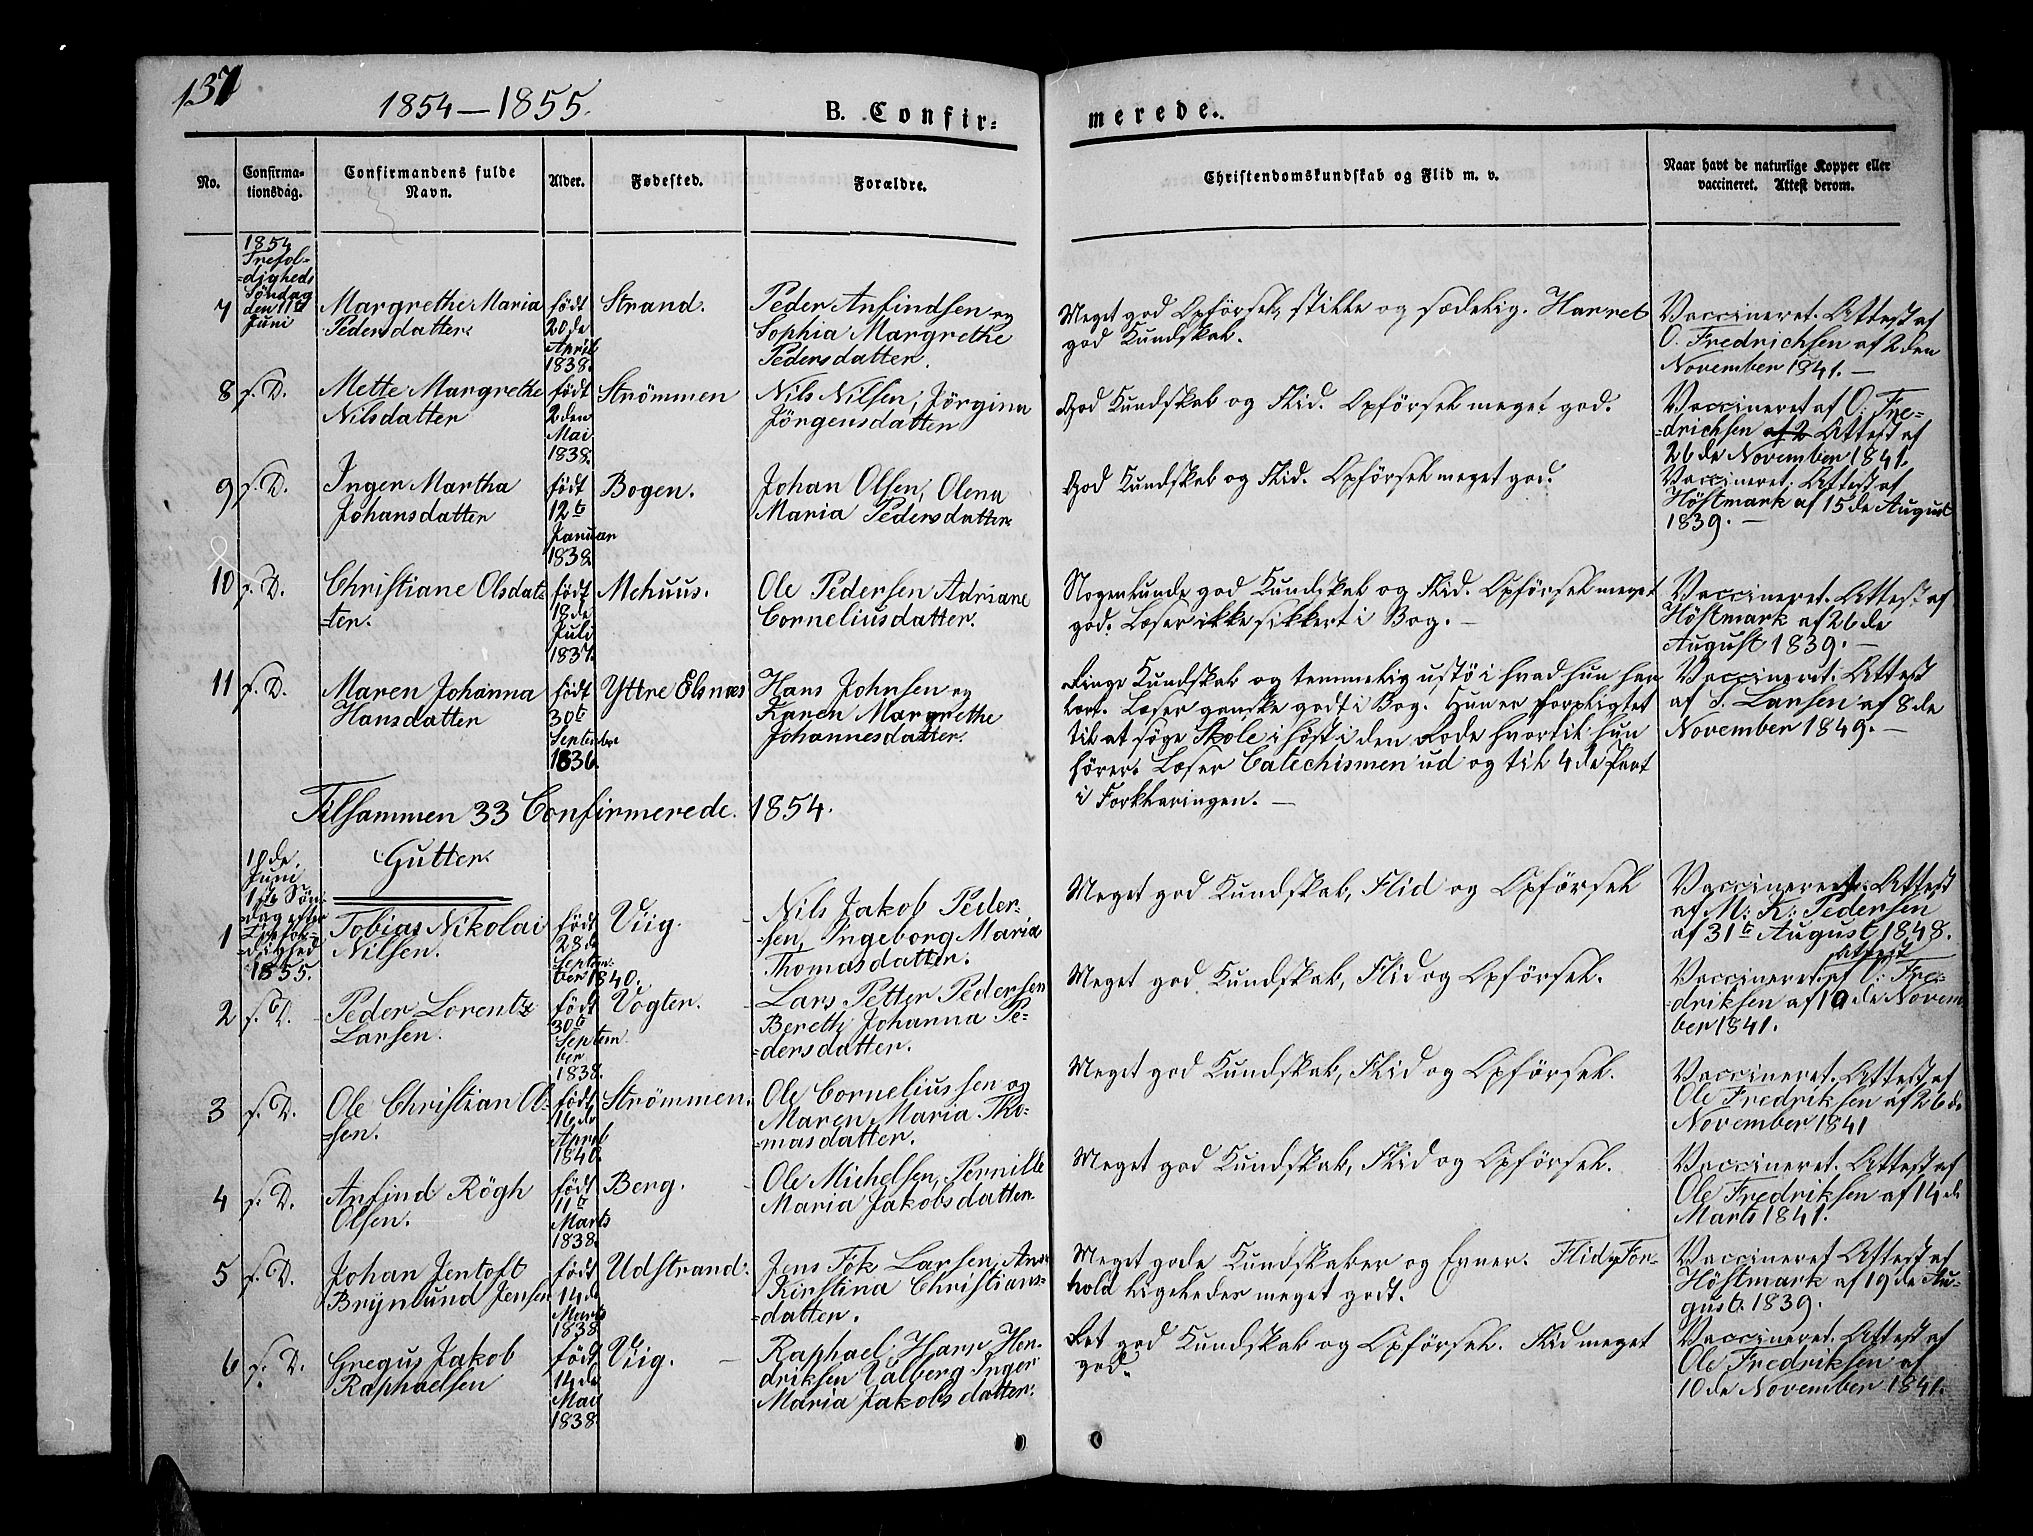 137
1854–1855.
B. Confirmerede.
No.
Confirmationsdag.
Confirmandens fulde Navn.
Alder.
Fødested.
Forældre.
Christendomskundskab og Flid m. v.
Naar havt de naturlige Kopper eller vaccineret. Attest derom.
1854
Trefol-
=digheds
Søndag
den 11te
Juni
7
Margrethe Maria
Pedersdatter
født
20de
April
1838.
Strand.
Peder Anfindsen og
Sophia Margrethe
Pedersdatter.
Meget god Opførsel, stille og sædelig. Har ret
god Kundskab.
Vaccineret. Attest af
O. Fredrichsen af 2den
November 1841. —
8
f. D.
Mette Margrethe
Nilsdatter
født
2den
Mai
1838.
Strømmen
Nils Nilsen, Jørgina
Jørgensdatter
God Kundskab og Flid. Opførsel meget god.
Vaccineret af O: Fre-
=drichsen af 2 Attest af
26de November 1841.
9
f. D.
Inger Martha
Johansdatter
født
12te
Januar
1838.
Bogen.
Johan Olsen, Olena
Maria Pedersdatter
God Kundskab og Flid. Opførsel meget god.
Vaccineret. Attest af
Höstmark af 15de August
1839. —
10
f. D.
Christiane Olsdat-
=ter.
født
18de
Juli
1837.
Mehuus.
Ole Pedersen Adriane
Corneliusdatter.
Nogenlunde god Kundskab og Flid. Opførsel meget
god. Læser ikke sikkert i Bog. —
Vaccineret. Attest af
Höstmark af 26de
August 1839. —
11
f. D.
Maren Johanna
Hansdatter
født
30te
September
1836.
Yttre Elsnæs
Hans Johnsen og
Karen Margrethe
Johannesdatter.
Ringe Kundskab og temmelig ustø i hvad hun har
lært. Læser ganske godt i Bog. Hun er forpligtet
til at søge Skole i høst i den Rode hvortil hun
hører. Læser Catechismen ud og til 4de Part
i Forklaringen. —
Vaccineret. Attest
af S. Larsen af 8de
November 1849. —
Tilsammen 33 Confirmerede. 1854.
Gutter.
10de
Juni
1ste Søn-
dag efter
Trefol-
=dighed
1855.
1
Tobias Nikolai
Nilsen.
født
28de
Septem-
ber 1840.
Viig.
Nils Jakob Peder-
=sen, Ingeborg Maria
Thomasdatter.
Meget god Kundskab, Flid og Opførsel
Vaccineret. Attest
af M: K: Pedersen
af 31te August 1848.
2
f. D.
Peder Lorentz
Larsen.
født
30te
Septem
ber
1838.
Vogter.
Lars Petter Pedersen
Bereth Johanna Pe-
=dersdatter.
Meget god Kundskab, Flid og Opførsel.
Vaccineret. Attest af O: Fre-
=driksen af 10de Novem
ber 1841.
3
f. D.
Ole Christian Ol-
=sen.
født
16de
April
1840.
Strømmen.
Ole Corneliussen og
Maren Maria Tho-
=masdatter.
Meget god Kundskab, Flid og Opførsel.
Vaccineret. Attest af
Ole Fredriksen af 26de
November 1841
4
f. D.
Anfind Rögh
Olsen.
født
11te
Marts
1838.
Berg.
Ole Michelsen, Pernille
Maria Jakobsdatter.
Meget god Kundskab, Flid og Opførsel.
Vaccineret. Attest af
Ole Fredriksen af 14de
Marts 1841.
5
f. D.
Johan Jentoft
Brynlund Jensen
født
14de
Marts
1838
Udstrand.
Jens Fok Larsen, Anne
Kirstina Christians-
=datter.
Meget gode Kundskaber og Evner. Flid og For-
hold ligeledes meget godt.
Vaccineret Attest af
Höstmark af 19de Au-
gust. 1839.
6
f. D.
Gregus Jakob
Raphaelsen
født
14de
Mai
1838.
Viig. —
Raphael Hans Hen-
driksen Valberg Inger
Maria Jakobsdatter.
Ret god Kundskab og Opførsel. Flid meget
god.
Vaccineret. Attest af
Ole Fredriksen af
10de November 1841.